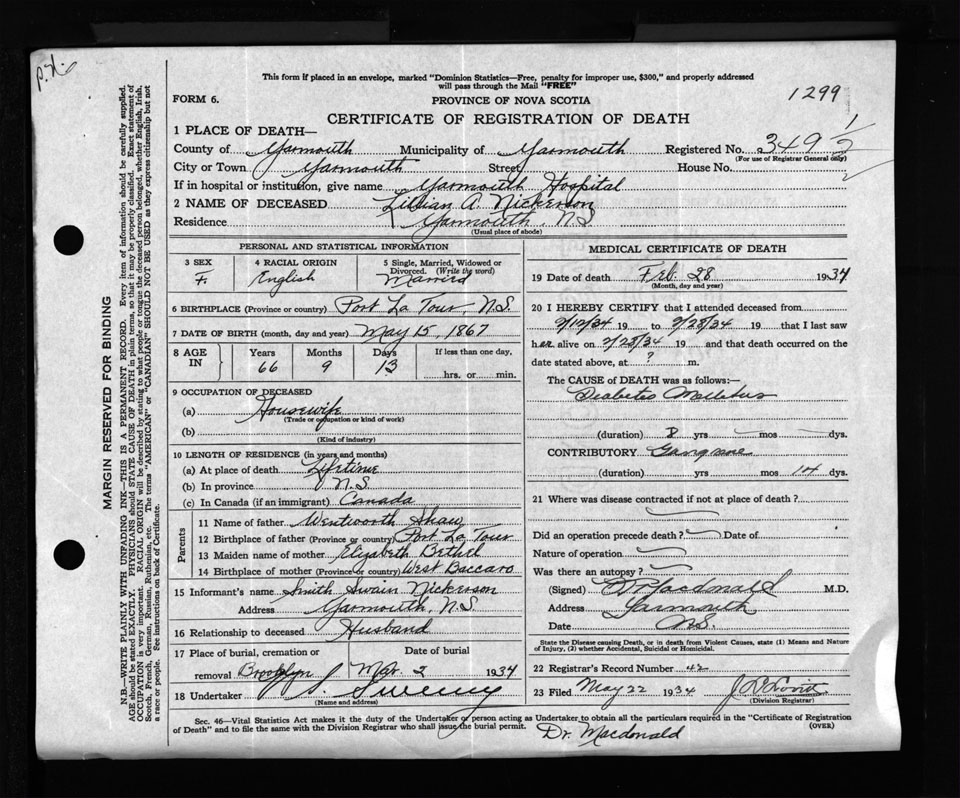 p.x.
This form if placed in an envelope, marked "Dominion Statistics—Free, penalty for improper use, $300," and properly addressed
will pass through the Mail "FREE"
FORM 6.
PROVINCE OF NOVA SCOTIA
1299
CERTIFICATE OF REGISTRATION OF DEATH
1 PLACE OF DEATH—
County of Yarmouth Municipality of Yarmouth Registered No. 349 1/2
(For use of Registrar General only)
City or Town Yarmouth Street House No.
If in hospital or institution, give name Yarmouth Hospital
2 NAME OF DECEASED Lillian A. Nickerson
Residence Yarmouth, N.S.
(Usual place of abode)
PERSONAL AND STATISTICAL INFORMATION
3 SEX F. 4 RACIAL ORIGIN English 5 Single, Married, Widowed or Divorced. (Write the word) Married
6 BIRTHPLACE (Province or country) Port La Tour, N.S.
7 DATE OF BIRTH (month, day and year) May 15, 1867
8 AGE IN Years 66 Months 9 Days 13 If less than one day, hrs. or min.
9 OCCUPATION OF DECEASED
(a) Housewife
(Trade or occupation or kind of work)
(b)
(Kind of industry)
10 LENGTH OF RESIDENCE (in years and months)
(a) At place of death Lifetime
(b) In province N.S.
(c) In Canada (if an immigrant) Canada
Parents
11 Name of father Wentworth Shaw
12 Birthplace of father (Province or country) Port La Tour
13 Maiden name of mother Elizabeth Bethel
14 Birthplace of mother (Province or country) West Baccaro
15 Informant's name Smith Swain Nickerson
Address Yarmouth, N.S.
16 Relationship to deceased Husband
17 Place of burial, cremation or removal Brooklyn Date of burial Mar. 2 1934
18 Undertaker S. Sweeny
(Name and address)
MEDICAL CERTIFICATE OF DEATH
19 Date of death Feb. 28 1934
(Month, day and year)
20 I HEREBY CERTIFY that I attended deceased from
2/12/34 19 to 2/28/34 19 that I last saw
her alive on 2/28/34 19 and that death occurred on the
date stated above, at ? m.
The CAUSE of DEATH was as follows:—
Diabetes Mellitus
(duration) 8 yrs mos dys.
CONTRIBUTORY Gangrene
(duration) yrs mos 14 dys.
21 Where was disease contracted if not at place of death?
Did an operation precede death? Date of
Nature of operation
Was there an autopsy?
(Signed) Macdonald M.D.
Address Yarmouth
Date N.S.
State the Disease causing Death, or in death from Violent Causes, state (1) Means and Nature
of Injury, (2) whether Accidental, Suicidal or Homicidal.
22 Registrar's Record Number 42
23 Filed May 22 1934
(Division Registrar)
Sec. 46—Vital Statistics Act makes it the duty of the Undertaker or person acting as Undertaker to obtain all the particulars required in the "Certificate of Registration
of Death" and to file the same with the Division Registrar who shall issue the burial permit.
(OVER)
Dr. Macdonald
MARGIN RESERVED FOR BINDING
N.B.—WRITE PLAINLY WITH UNFADING INK—THIS IS A PERMANENT RECORD. Every item of information should be carefully supplied.
AGE should be stated EXACTLY. PHYSICIANS should STATE CAUSE OF DEATH in plain terms, so that it may be properly classified. Exact statement of
OCCUPATION is very important. RACIAL ORIGIN will be described by stating to what people or tongue the deceased person belonged, whether English, Irish,
Scotch, French, German, Russian, Ruthenian, etc. The terms "AMERICAN" or "CANADIAN" SHOULD NOT BE USED as they express citizenship but not
a race or people. See instructions on back of Certificate.